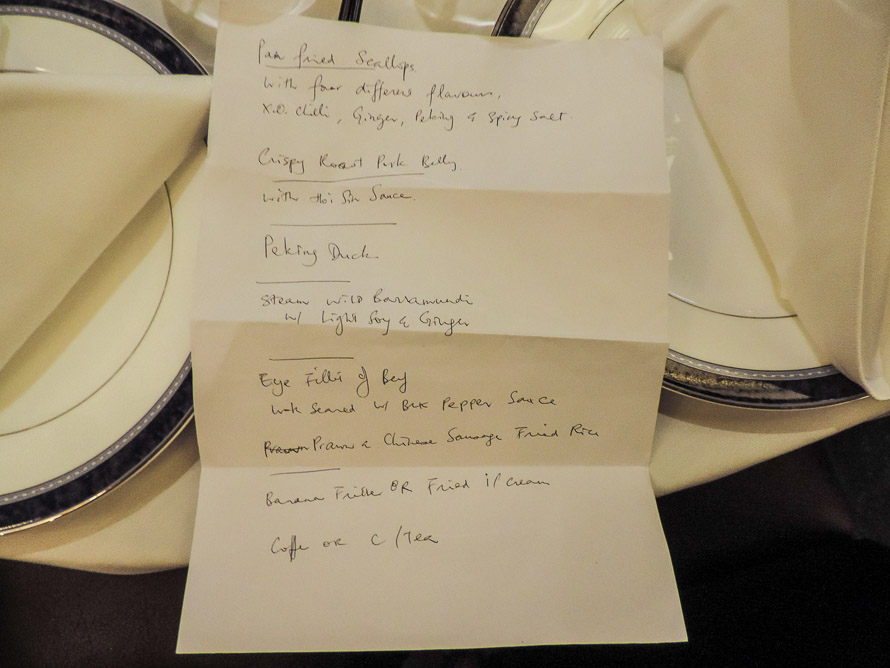 Pan fried Scallops
with four different flavours,
X.O. Chilli, Ginger, Peking & Spicy Salt
Crispy Roast Pork Belly
with Hoi Sin Sauce.
Peking Duck
Steam Wild Barramundi
w/ Light Soy & Ginger
Eye Fillet of Beef
Wok Seared w/ Blk Pepper Sauce
Prawn & Chinese Sausage Fried Rice
Banana Fritter OR Fried i/cream
Coffe or C/Tea